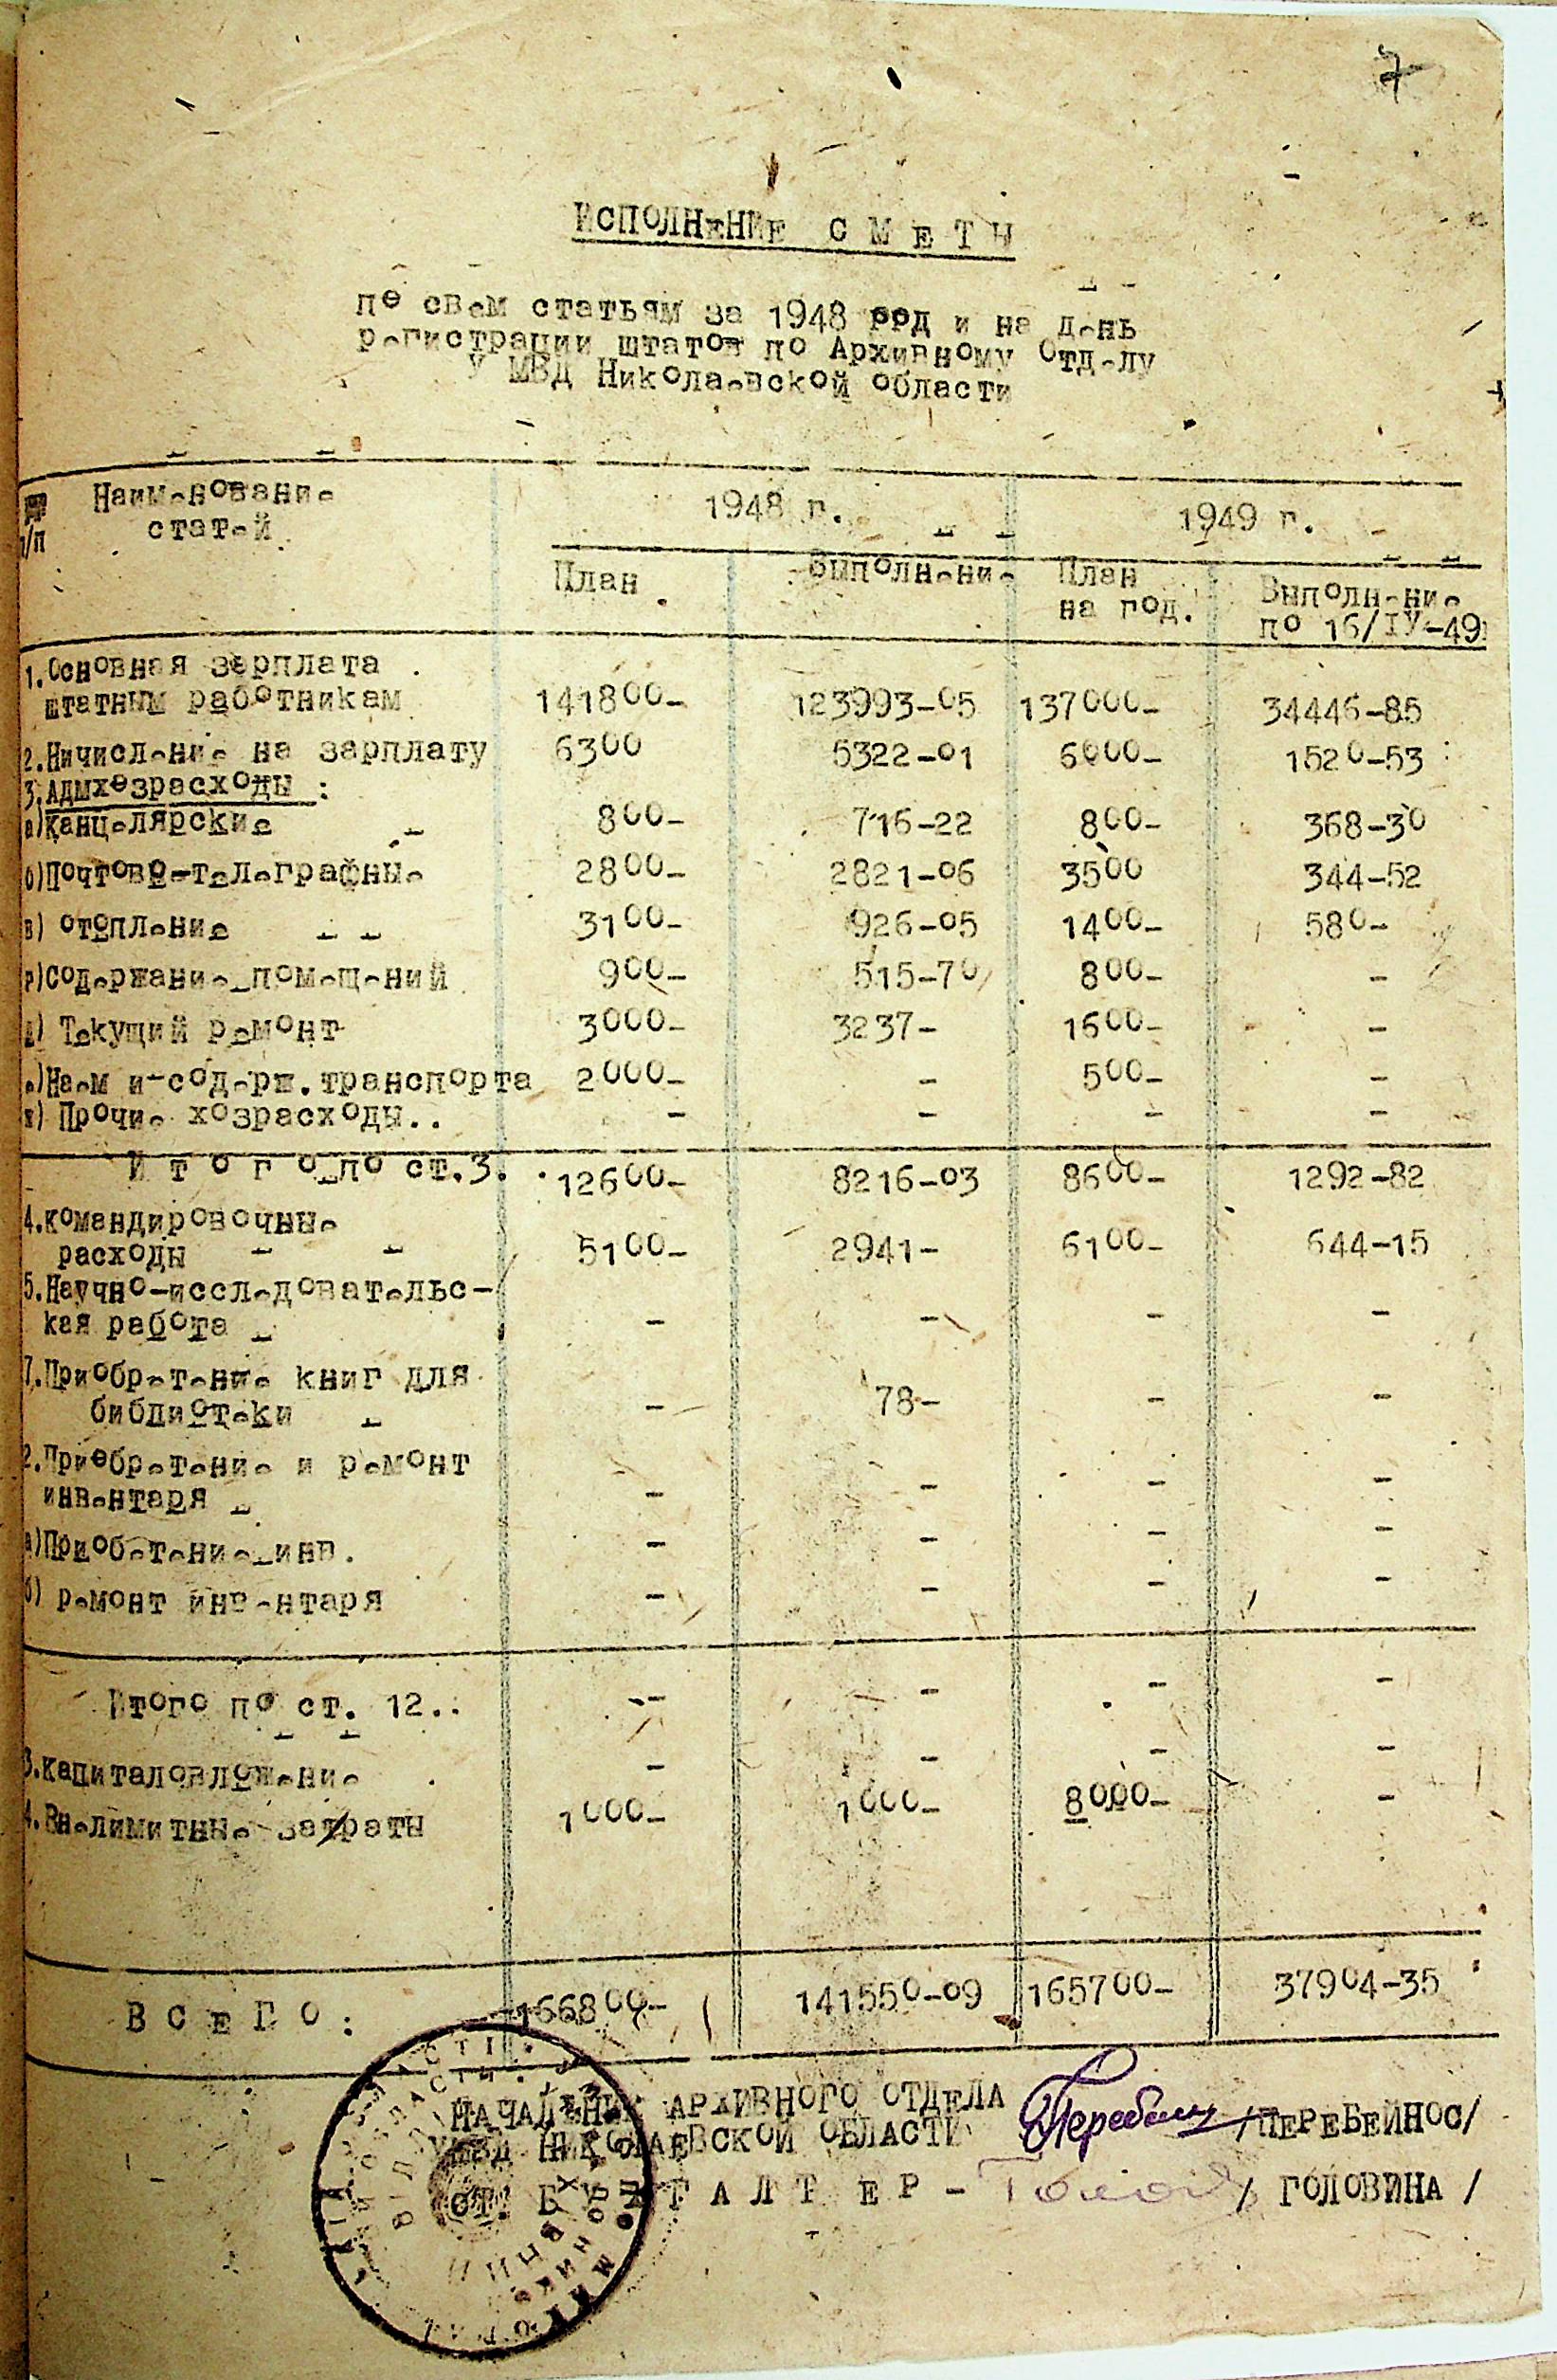 7
ИСПОЛНЕНИЕ С М Е Т Ы
по свем статьям за 1948 год и на день
регистрации штатов по Архивному Отделу
У МВД Николаевской области
п/п Наименование статей 1948 г. 1949 г.
План Выполнение План на год. Выполнение по 16/IУ-49
1. Основная зарплата
штатным работникам 141800- 123993-05 137000- 34446-85
2. Ничисление на зарплату 6300 5322-01 6000- 1520-53
3. Адмхозрасходы :
а) Канцелярские 800- 716-22 800- 368-30
б) Почтово-телеграфные 2800- 2821-06 3500 344-52
в) отопление 3100- 926-05 1400- 580-
г) Содержание помещений 900- 515-70 800- -
д) Текущий ремонт 3000- 3237- 1600- -
е) Наем и содерж. транспорта 2000- - 500- -
ж) Прочие хозрасходы.. - - - -
И т о г о по ст.3. 12600- 8216-03 8600- 1292-82
4. командировочные
расходы 5100- 2941- 6100- 644-15
5. Научно-исследовательс-
кая работа - - - -
7. Приобретение книг для
библиотеки - 78- - -
2. Приобретение и ремонт
инвентаря - - - -
а) Приобетение инв. - - - -
б) ремонт инвентаря - - - -
Итого по ст. 12.. - - - -
3. капиталовложение - - - -
4. Внелимитные затраты 1000- 1000- 8000- -
В С Е Г О : 166800- 141550-09 165700- 37904-35
НАЧАЛЬНИК АРХИВНОГО ОТДЕЛА
УМВД НИКОЛАЕВСКОЙ ОБЛАСТИ /ПЕРЕБЕЙНОС/
СТ. Б У Х Г А Л Т Е Р - / ГОЛОВИНА /